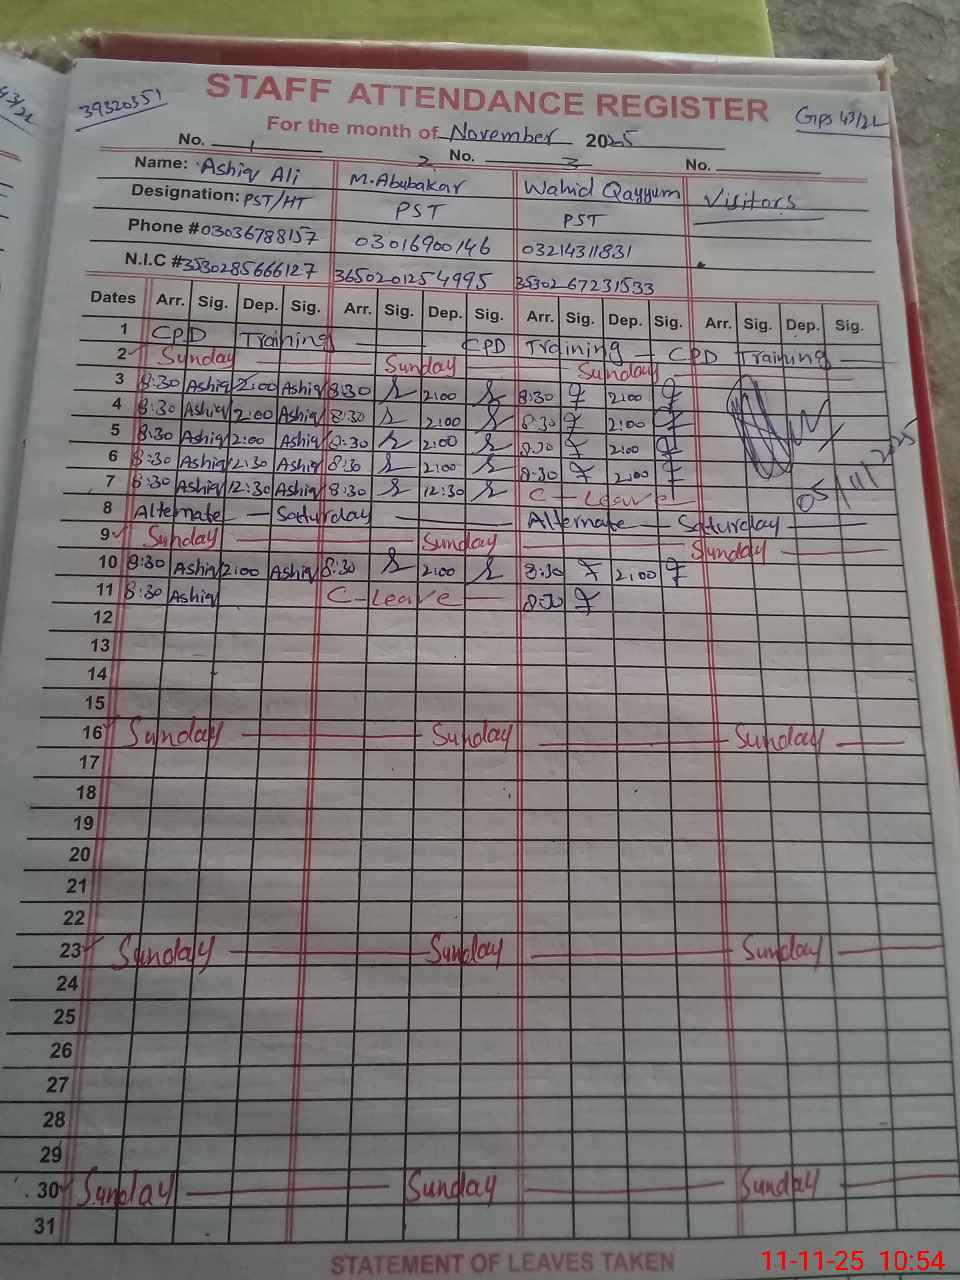 39320351
STAFF ATTENDANCE REGISTER
Gps 43/2L
For the month of November 2025
No. 1 2 No. 3 No.
Name: Ashiq Ali M.Abubakar Wahid Qayyum Visitors
Designation: PST/HT PST PST
Phone # 03036788157 03016900146 03214311831
N.I.C # 3530285666127 3650201254995 3530267231533
Dates Arr. Sig. Dep. Sig. Arr. Sig. Dep. Sig. Arr. Sig. Dep. Sig. Arr. Sig. Dep. Sig.
1 CPD Training CPD Training CPD Training
2 Sunday Sunday Sunday
3 8:30 Ashiq 2:00 Ashiq 8:30 2:00 8:30 2:00
4 8:30 Ashiq 2:00 Ashiq 8:30 2:00 8:30 2:00
5 8:30 Ashiq 2:00 Ashiq 8:30 2:00 8:30 2:00
6 8:30 Ashiq 2:30 Ashiq 8:30 2:00 8:30 2:00
7 8:30 Ashiq 12:30 Ashiq 8:30 12:30 C-Leave
05/11/2025
8 Alternate Saturday Alternate Saturday
9 Sunday Sunday Sunday
10 8:30 Ashiq 2:00 Ashiq 8:30 2:00 8:30 2:00
11 8:30 Ashiq C-Leave 8:30
12
13
14
15
16 Sunday Sunday Sunday
17
18
19
20
21
22
23 Sunday Sunday Sunday
24
25
26
27
28
29
30 Sunday Sunday Sunday
31
STATEMENT OF LEAVES TAKEN
11-11-25 10:54